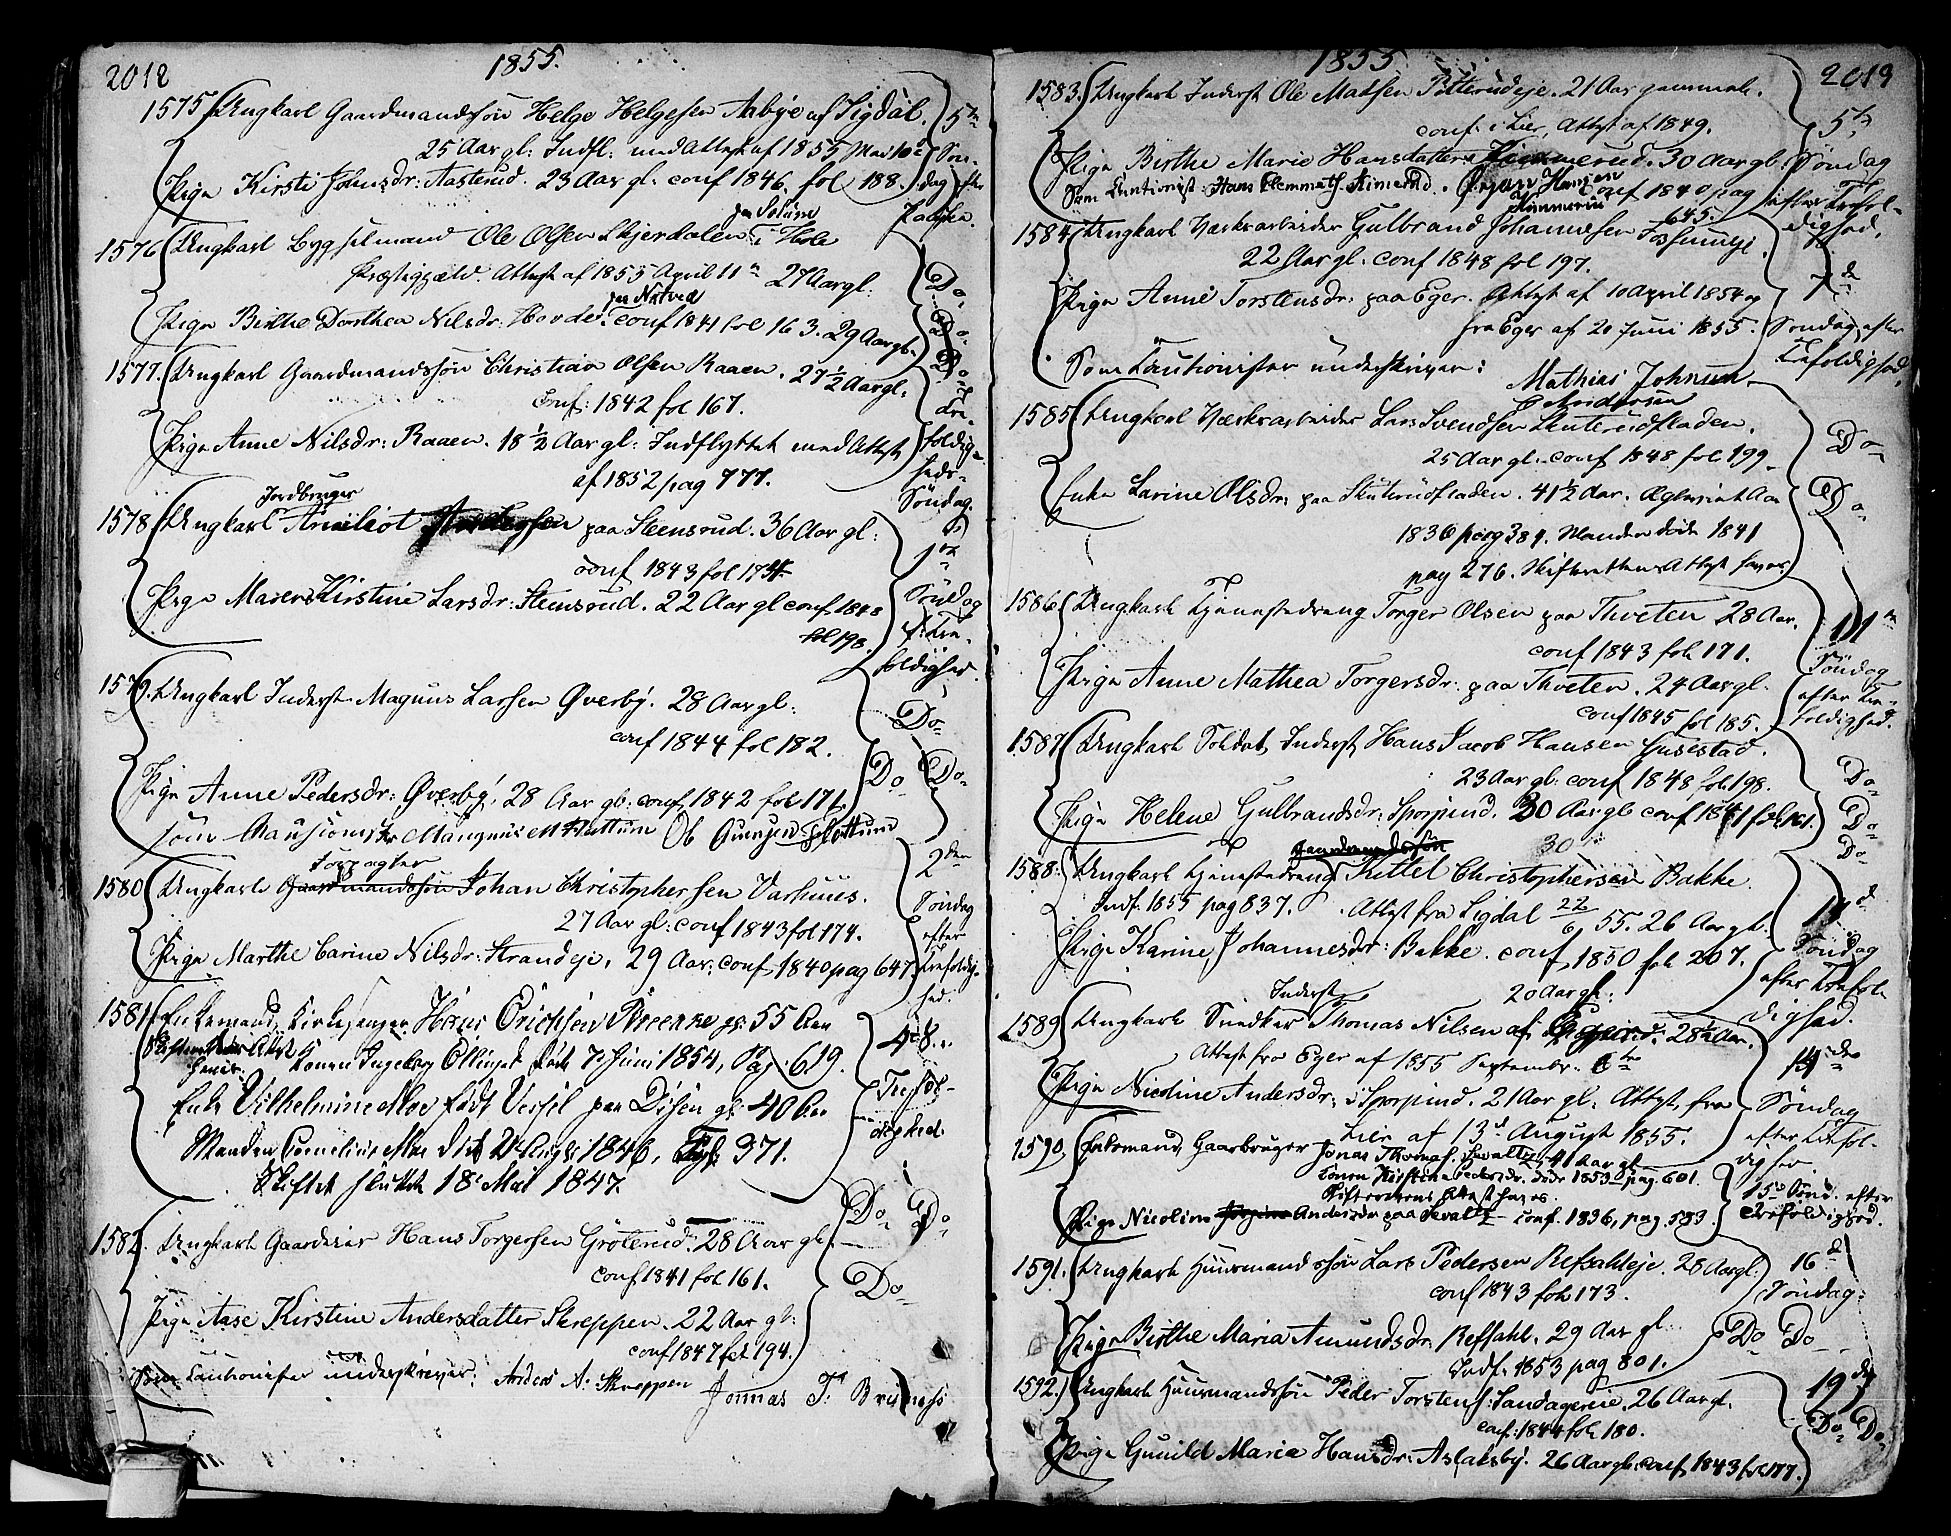 2012
1855.
1575 Ungkarl Gaardmandssön Helge Helgesen Aabye af Sigdal.
25 Aar gl: Indfl: med Attest af 1855 Mai 10de
Pige Kirsti Johnsdr: Aasterud. 23 Aar gl. conf 1846. fol 188.
5te Søndag efter Paaske.
1576 Ungkarl Bygselmand Ole Olsen Skjerdalen i Hole
Præstegjæld. Attest af 1855 April 11te 27 Aar gl:
Pige Birthe Dorthea Nilsdr: Hovde. conf 1841 fol 163. 29 Aar gl.
Do. Do.
1577. Ungkarl Gaardmandssön Christian Olsen Raaen. 27½ Aar gl.
Conf: 1842 fol 167.
Pige Anne Nilsdr: Raaen. 18½ Aar gl: Indflyttet med Attest
af 1852 pag 777.
Do Trefoldigheds-Søndag.
Jordbruger
1578 Ungkarl paa Steensrud. 36 Aar gl:
conf 1843 fol 174.
Pige Maren Kirstine Larsdr: Steensrud. 22 Aar gl conf 1848
fol 198.
1ste Søndag f: Trefoldighed.
1579. Ungkarl Inderst Magnus Larsen Øverby. 28 Aar gl:
conf 1844 fol 182.
Pige Anne Pedersdr: Øverby, 28 Aar gl: conf 1842 fol 171
Do. Do Do.
Forpagter
1580 Ungkarl Gaardmandssön Johan Christophersen Varhuus.
27 Aar gl: conf 1843 fol 174.
Pige Marthe Carine Nilsdr: Strandeje. 29 Aar. conf 1840 pag 647
2den Søndag efter Trefoldighed.
1581 Enkemand, Kirkesanger Erichsen gl: 55 Aar
Konen Ingeborg død 7 Juni 1854, Pag: 619.
Enke Vilhelmine Moe født paa Disen gl: 40 Aar
Manden Cornelius Moe død 1846, 371.
Skiftet sluttet 18 Mai 1847.
1582. Ungkarl Gaardeier Hans Torgersen Gröterud. 28 Aar gl:
conf 1841 fol 161.
Pige Aase Kirstine Andersdatter Skreppen. 22 Aar gl:
conf 1847 fol 194.
Do Do Do.
Som Cautionister underskriver: Anders A: Skreppen
Jonnas T.
1855
2013
1583. Ungkarl Inderst Ole Madsen 21 Aar gammel.
conf: i Lier, Attest af 1849.
Pige Birthe Marie Hansdatter 30 Aar gl
conf 1840 pag
645.
5te Søndag efter Trefoldighed.
1584 Ungkarl Værksarbeider Gulbrand Johannesen Fossumeje.
22 Aar gl. conf 1848 fol 197.
Pige Anne Torstensdr: paa Eger. Attest af 10 April 1854 og
fra Eger af 20 Juni 1855.
7de Søndag efter Trefoldighed.
Som Cautionister underskriver:
Mathias Johnsen
1585 Ungkarl Værksarbeider Lars Svendsen Skuterudfladen.
25 Aar gl. conf 1848 fol 199.
Enke Larine Olsdr: paa Skuterudfladen. 41½ Aar. Ægteviet Aar
1836 pag 389. Manden döde 1841
pag 276. Skifterettens Attest haves
Do Do.
1586 Ungkarl Tjenestedreng Torger Olsen paa Thveten 28 Aar.
conf 1843 fol 171.
Pige Anne Mathea Torgersdr: paa Thveten. 24 Aar gl.
conf 1845 fol 185.
11te Søndag efter Trefoldighed.
1587 Ungkarl Soldat, Inderst Hans Jacob Hansen Gusestad.
23 Aar gl: conf 1848, fol 198.
Pige Helene Gulbrandsdr: 30 Aar gl conf 1841 fol 161.
30
Do Do Do
1588 Ungkarl Tjenestedreng Kittel Christophersen Bakke.
Indf. 1855 pag 837. Attest fra Sigdal 22/6 55. 26 Aar gl.
Pige Karine Johannesdr: Bakke. conf 1850 fol 207.
20 Aar gl:
Søndag efter Trefoldighed.
Inderst
1589 Ungkarl Snedker Thomas Nilsen af 28½ Aar.
Attest fra Eger af 1855 September
Pige Nicoline Andersdr: i 21 Aar gl: Attest fra
Lier af 13de August 1855.
14de Søndag efter Trefoldighed.
1590. Enkemand, Gaardbruger Jonas Thomas. 41 Aar gl
Konen Kirstine Pedersdr. döde 1853 pag. 601.
Skifterettens Attest haves.
Pige Nicoline Andersdr paa conf. 1836, pag. 583
15de Sönd. efter Trefoldighed.
1591. Ungkarl Huusmandssön Lars Pedersen Refsahleje. 28 Aar gl:
conf 1843 fol 173.
Pige Birthe Maria Amundsdr. Refsahl. 29 Aar gl:
Indf. 1853 pag 801.
16de Søndag.
Do Do
1592. Ungkarl Huusmandssön Peder Torstens: Sandagereie. 26 Aar gl.
conf: 1844 fol 180.
Pige Gunild Maria Hansdr: Aslaksby. 26 Aar gl: conf 1843 fol 177.
19de
Do Do